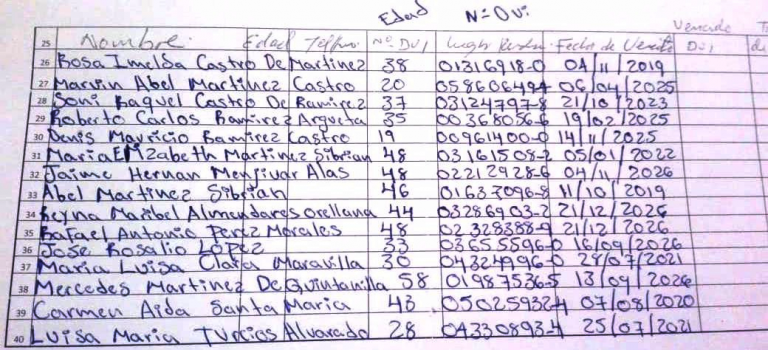 Edad Nº Dui
Vencido
25 Nombre Edad Teffno Nº DUI Lugar Fecha de Vencite DUI
26 Rosa Imelda Castro De Martinez 38 01316918-0 04/11/2019
27 Marvin Abel Martinez Castro 20 05860649-4 06/04/2025
28 Soni Raquel Castro De Ramirez 37 03124797-8 21/10/2023
29 Roberto Carlos Ramirez Argueta 35 00368056-6 19/02/2025
30 Denis Mauricio Ramirez Castro 19 00961400-0 14/11/2025
31 Maria Elizabeth Martinez Sibrian 48 03161508-2 05/01/2022
32 Jaime Hernan Menjivar Alas 48 02212928-6 04/11/2026
33 Abel Martinez Sibrian 46 01637096-8 11/10/2019
34 Reyna Maribel Almendares Orellana 44 03286903-2 21/12/2026
35 Rafael Antonio Perez Morales 48 02328388-9 21/12/2026
36 Jose Rosalio LOPEZ 33 03655596-0 16/09/2026
37 Maria Luisa Clara Maravilla 30 04324996-0 29/07/2021
38 Mercedes Martinez De Quintanilla 58 01987536-5 13/09/2026
39 Carmen Aida Santa Maria 43 05025932-4 07/08/2020
40 Luisa Maria Turcios Alvarado 28 04330893-4 25/07/2021